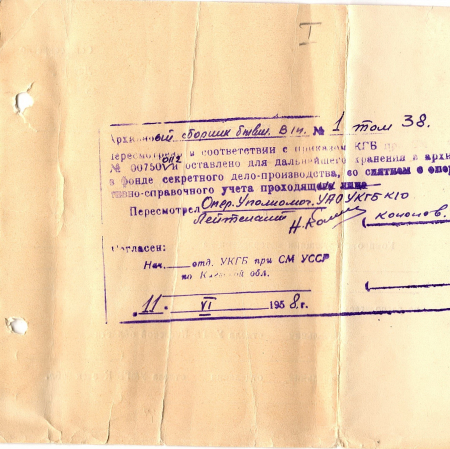 I
Архивный сборник бывш. В/ч. № 1 том 38.
Пересмотрен в соответствии с приказом КГБ пр
№ 00750 и оставлено для дальнейшего хранения в архи
в фонде секретного дело-производства, со снятием с опер
тивно-справочного учета проходящих лиц
Пересмотрел Опер. Уполномоч. УАО УКГБ К/О
Лейтенант
Кононов.
Согласен:
Нач. отд. УКГБ при СМ УССР
по обл.
„11" VI 1958 г.